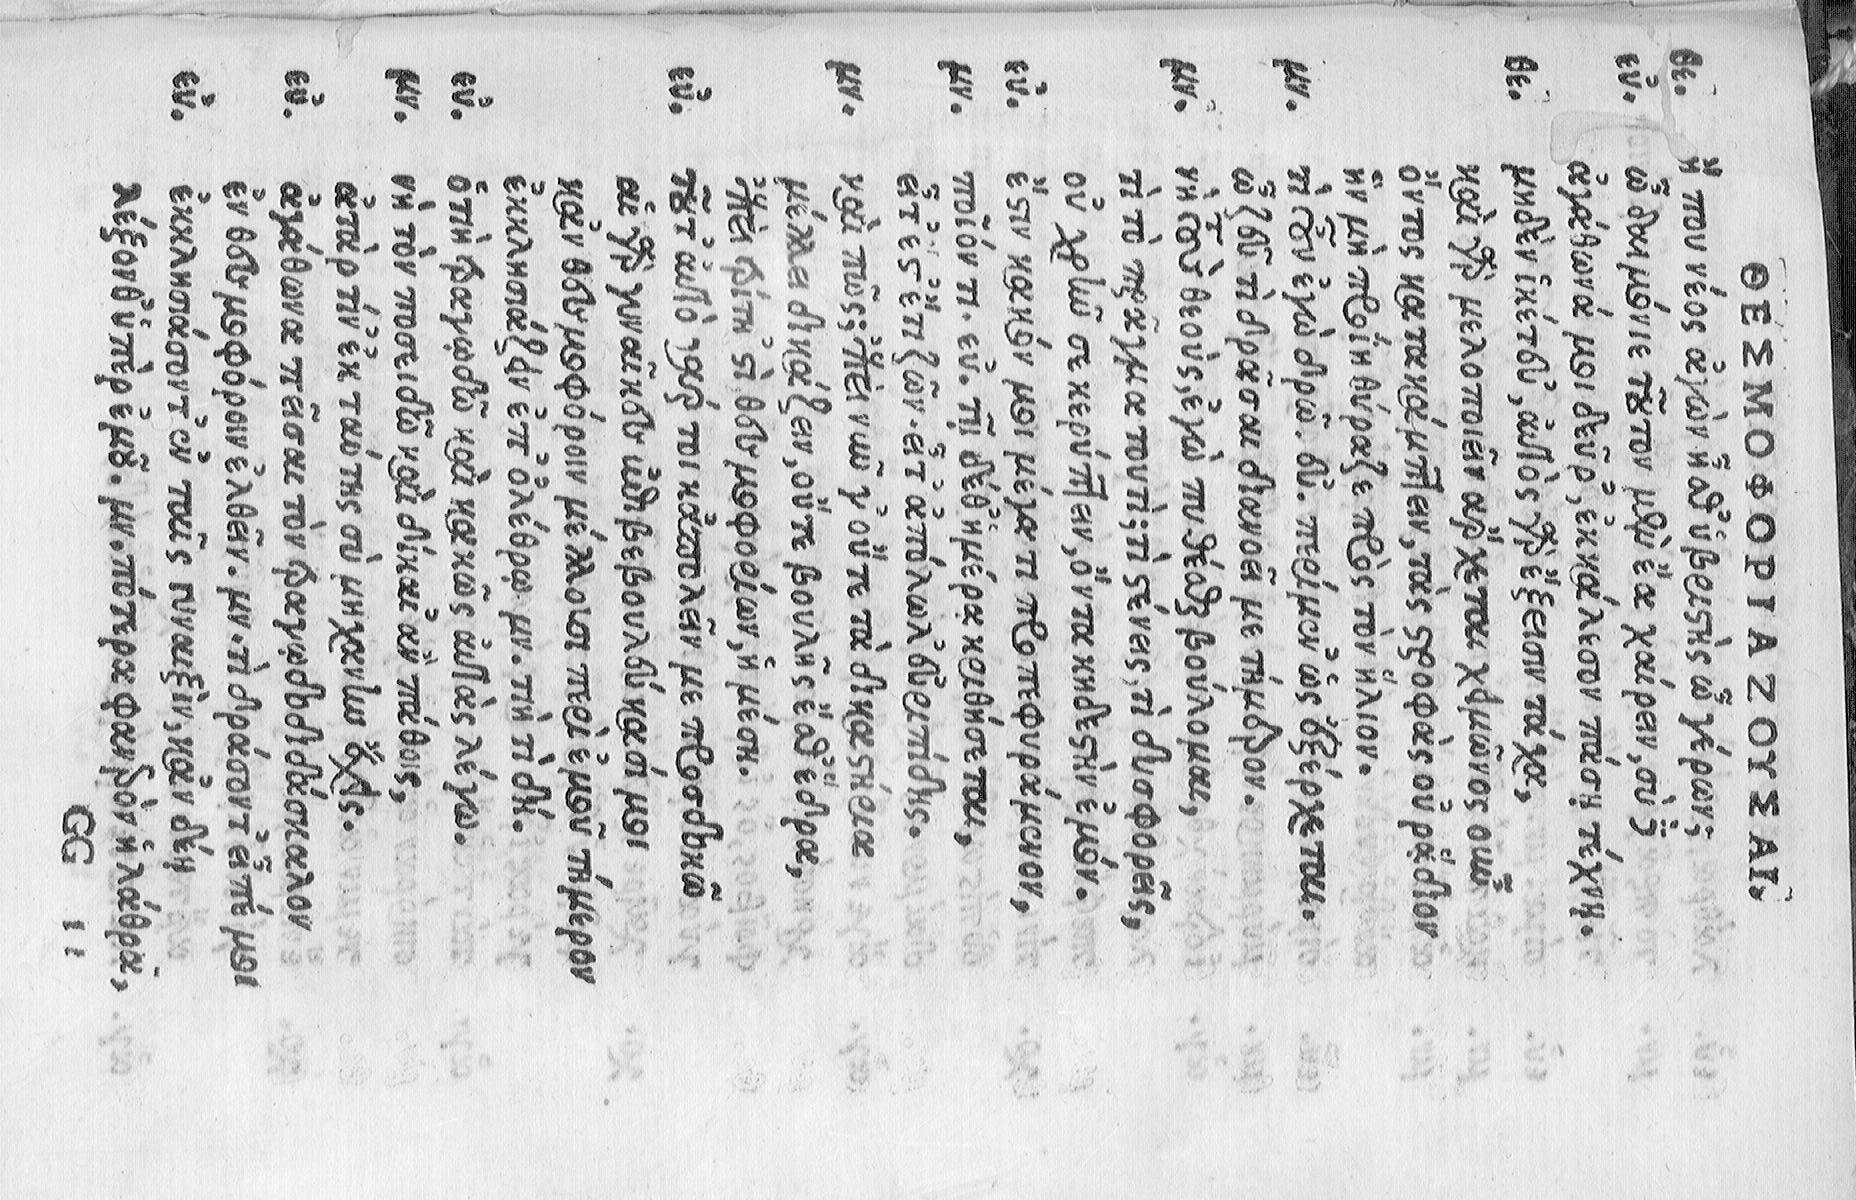 ΘΕΣΜΟΦΟΡΙΑΖΟΥΣΑΙ.
θε. ἤ που νέος ἀγὼν ἢ δ᾽ ὑβριστὴς ὦ γέρων;
εὐ. ὦ δαιμόνιε τοῦτον μὲν ἔα χαίρειν, σὺ δ᾽
ἀγάθωνά μοι δεῦρ᾽, ἐκκάλεσον πάσῃ τέχνῃ.
θε. μηδὲν ἱκέτευ᾽, αὐτὸς γὰρ ἔξεισιν τάχα,
καὶ γὰρ μελοποιεῖν ἄρχεται χειμῶνος οὖν
ὄντος κατακάμπτειν, τὰς στροφὰς οὐ ῥάδιον
ἢν μὴ προίῃ θύραζε πρὸς τὸν ἥλιον.
μν. τί οὖν ἐγὼ δρῶ. εὐ. περίμεν᾽ ὡς ἐξέρχεται.
ὦ ζεῦ τί δρᾶσαι διανοεῖ με τήμερον.
μν. νὴ τοὺς θεοὺς ἐγὼ πυθέσθαι βούλομαι,
τί τὸ πρᾶγμα τουτί; τί στένεις, τί δυσφορεῖς,
οὐ χρῆν σε κρύπτειν, ὄντα κηδεστὴν ἐμόν.
εὐ. ἔστιν κακόν μοι μέγα τι προπεφυραμένον,
μν. ποῖόν τι. εὐ. τῇδέ θ᾽ ἡμέρα κριθήσεται,
εἴτ᾽ ἔστ᾽ ἔτι ζῶν. εἴτ᾽ ἀπόλωλ᾽ εὐριπίδης.
μν. καὶ πῶς; ἐπεὶ νῦν γ᾽ οὔτε τὰ δικαστήρια
μέλλει δικάζειν, οὔτε βουλῆς ἔσθ᾽ ἕδρα,
ἐπεὶ τρίτη ᾽στὶ θεσμοφορίων, ἡ μέση.
εὐ. τοῦτ᾽ αὐτὸ γάρ τοι κἀπολεῖν με προσδοκῶ
αἱ γὰρ γυναῖκες ἐπιβεβουλεύκασί μοι
κἀν θεσμοφόροιν μέλλουσι περὶ ἐμοῦ τήμερον
ἐκκλησιάζειν ἐπ᾽ ὀλέθρῳ μν. τιὴ τί δή.
εὐ. ὁτιὴ τραγῳδῶ καὶ κακῶς αὐτὰς λέγω.
μν. νὴ τὸν ποσειδῶ καὶ δίκαι᾽ ἂν πάθοις,
ἀτὰρ τίν᾽ ἐκ ταύτης σὺ μηχανὴν ἔχεις.
εὐ. ἀγάθωνα πεῖσαι τὸν τραγῳδοδιδάσκαλον
ἐν θεσμοφόροιν ἐλθεῖν. μν. τί δράσοντ᾽ εἶπέ μοι
εὐ. ἐκκλησιάσοντ᾽ ἐν ταῖς γυναιξὶν, κἂν δέῃ
λέξονθ᾽ ὑπὲρ ἐμοῦ. μν. πότερα φανερὸν ἢ λάθρᾳ,
GG ii